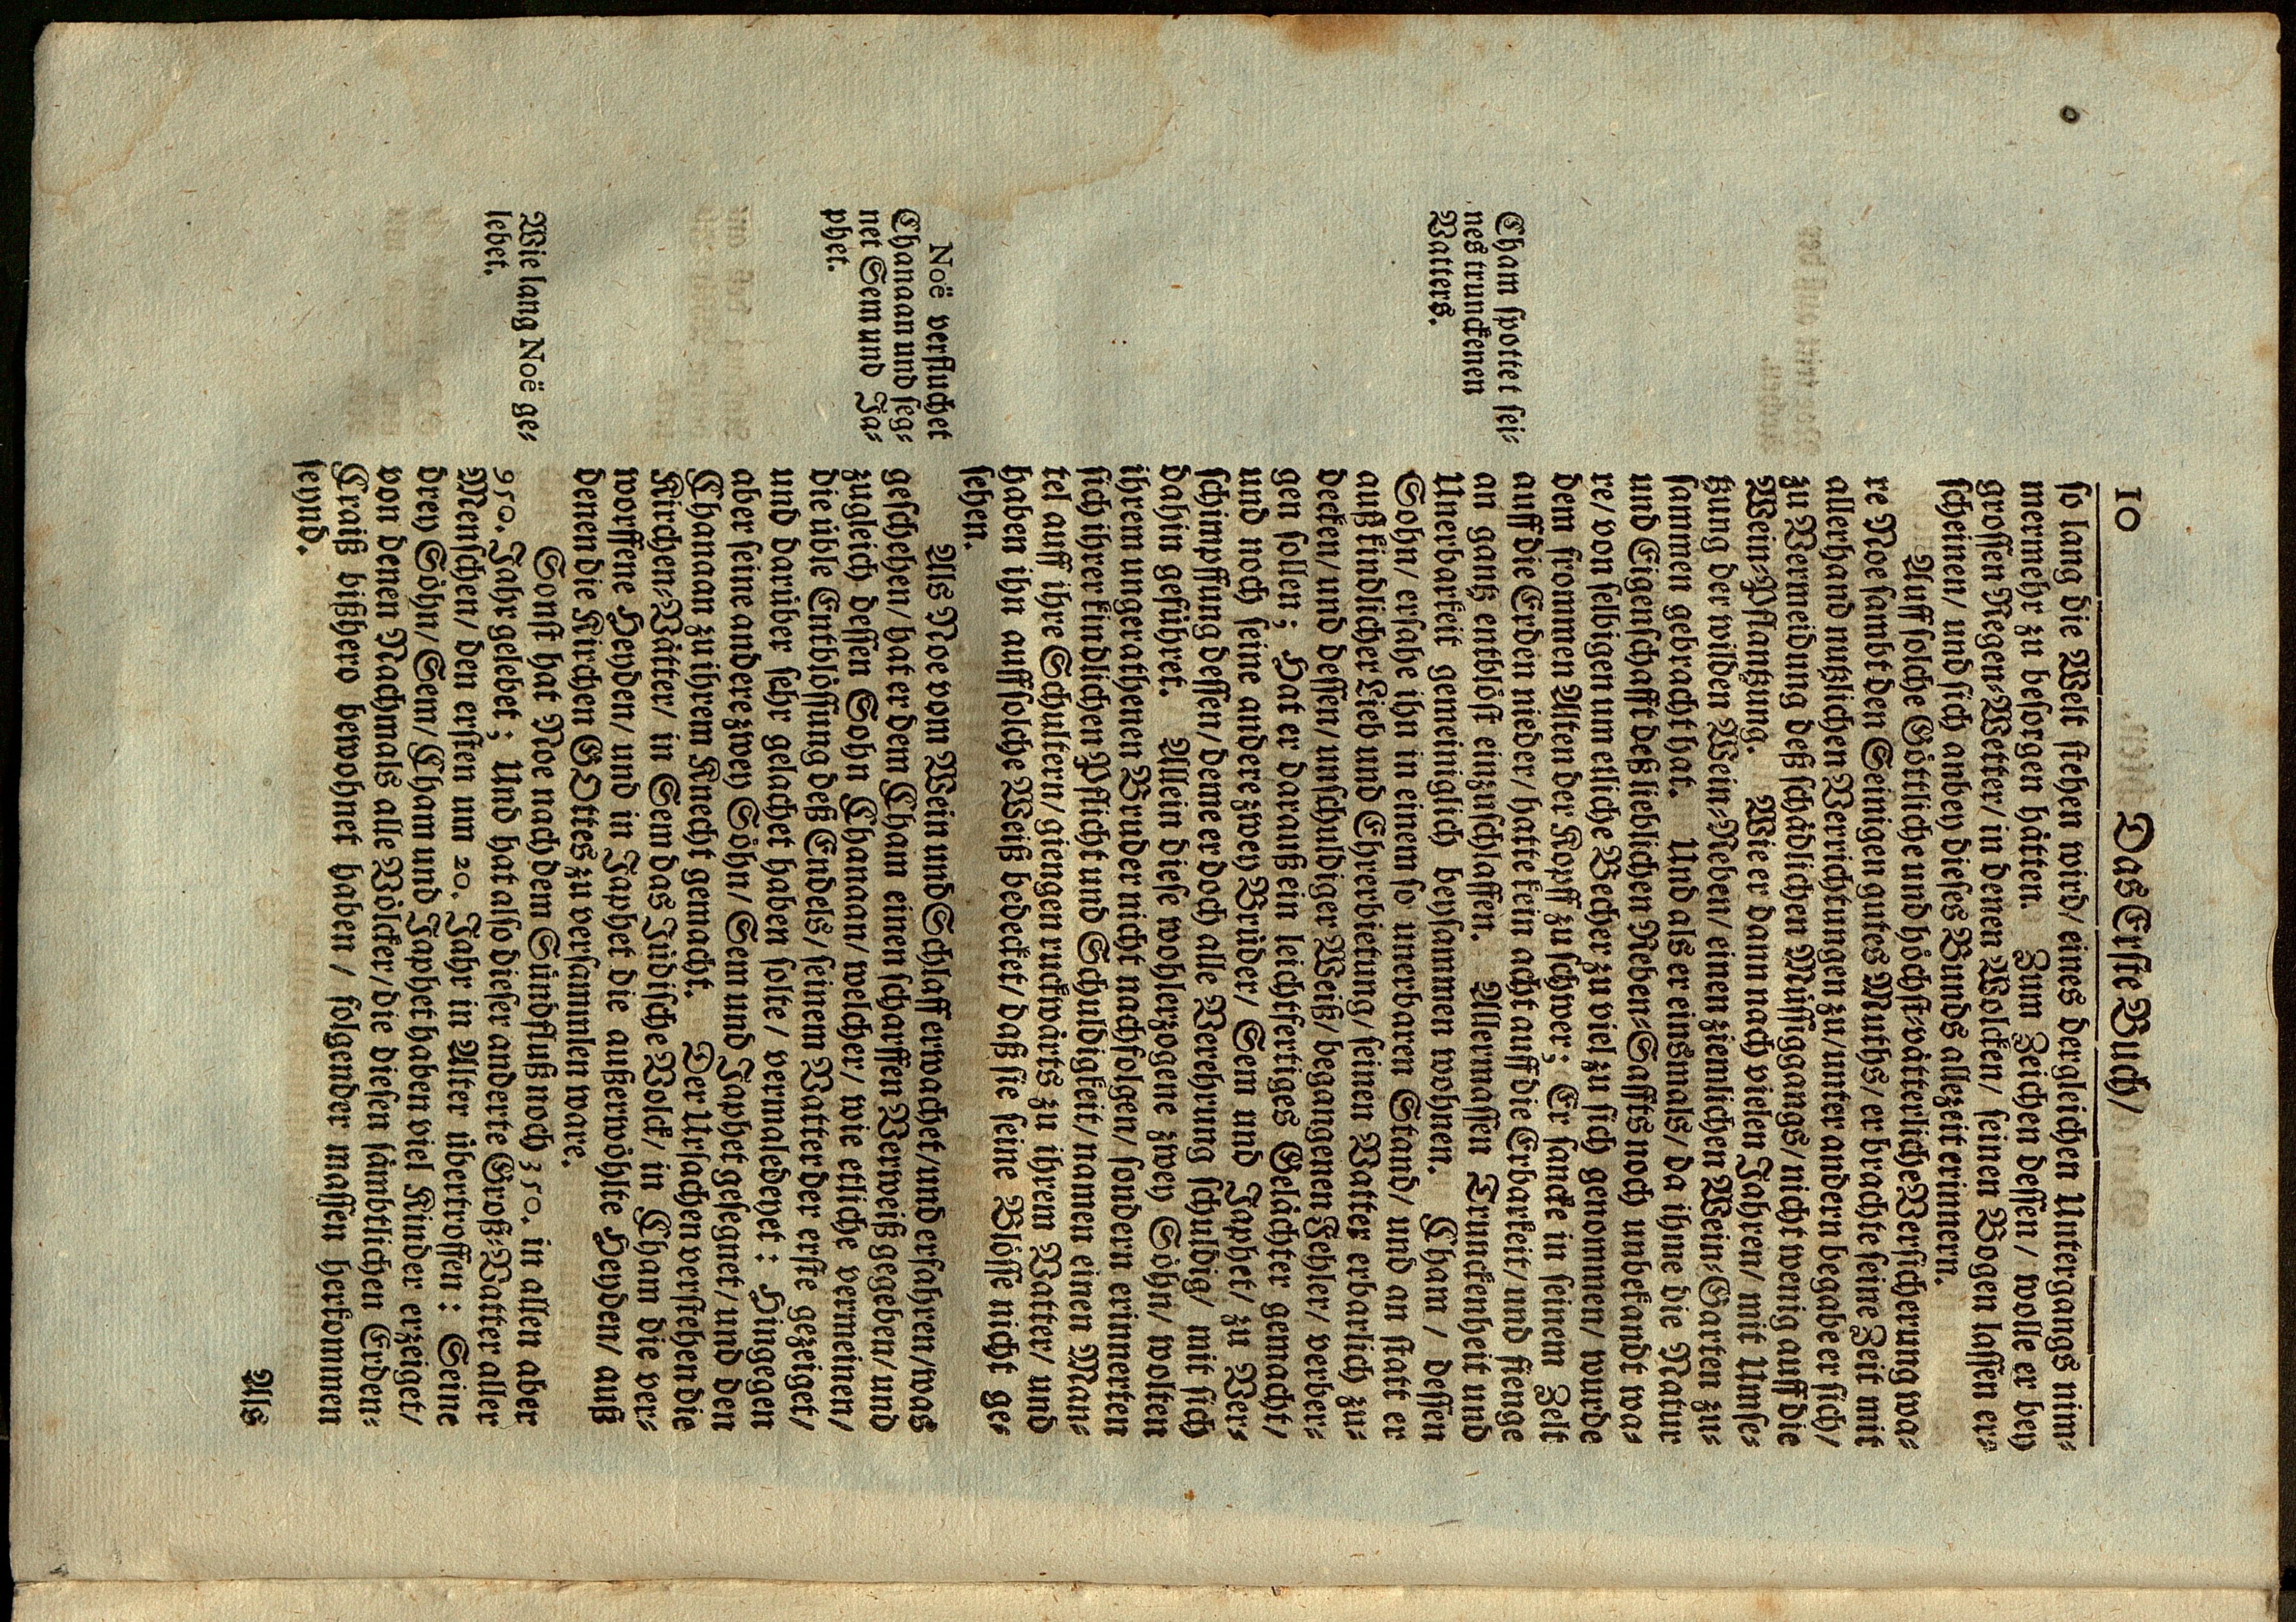 10 Das Erste Buch/
so lang die Welt stehen wird/ eines dergleichen Untergangs nim⸗
mermehr zu besorgen hätten. Zum Zeichen dessen/ wolle er bey
grossen Regen⸗Wetter/ in denen Wolcken/ seinen Bogen lassen er⸗
scheinen/ und sich anbey dieses Bunds allezeit erinnern.
Auff solche Göttliche und höchst⸗vätterliche Versicherung wa⸗
re Noe sambt den Seinigen gutes Muths/ er brachte seine Zeit mit
allerhand nutzlichen Verrichtungen zu/ unter andern begabe er sich/
zu Vermeidung deß schädlichen Müssiggangs/ nicht wenig auff die
Wein⸗Pflantzung. Wie er dann nach vielen Jahren/ mit Umse⸗
tzung der wilden Wein⸗Reben/ einen ziemlichen Wein⸗Garten zu⸗
sammen gebracht hat. Und als er einsmals/ da ihme die Natur
und Eigenschafft deß lieblichen Reben⸗Saffts noch unbekandt wa⸗
re/ von selbigen um etliche Becher zu viel zu sich genommen/ wurde
dem frommen Alten der Kopff zu schwer; Er sancke in seinem Zelt
auff die Erden nieder/ hatte kein acht auff die Erbarkeit/ und fienge
an gantz entblöst einzuschlaffen. Allermassen Trunckenheit und
Unerbarkeit gemeiniglich beysammen wohnen. Cham / dessen
Sohn/ ersahe ihn in einem so unerbaren Stand/ und an statt er
auß kindlicher Lieb und Ehrerbietung/ seinen Vatter erbarlich zu⸗
decken/ und dessen/ unschuldiger Weiß/ begangenen Fehler/ verber⸗
gen sollen; Hat er darauß ein leichtfertiges Gelächter gemacht/
und noch seine andere zwey Brüder/ Sem und Japhet/ zu Ver⸗
schimpffung dessen/ deme er doch alle Verehrung schuldig/ mit sich
dahin geführet. Allein diese wohlerzogene zwey Söhn/ wolten
ihrem ungerathenen Bruder nicht nachfolgen/ sondern erinnerten
sich ihrer kindlichen Pflicht und Schuldigkeit/ namen einen Man⸗
tel auff ihre Schultern/ giengen ruckwärts zu ihrem Vatter/ und
haben ihn auff solche Weiß bedecket/ daß sie seine Blösse nicht ge⸗
sehen.
Cham spottet sei⸗
nes trunckenen
Vatters.
Als Noe vom Wein und Schlaff erwachet/ und erfahren/ was
geschehen/ hat er dem Cham einen scharffen Verweiß gegeben/ und
zugleich dessen Sohn Chanaan/ welcher/ wie etliche vermeinen/
die üble Entblössung deß Endels/ seinem Vatter der erste gezeiget/
und darüber sehr gelachet haben solte/ vermaledeyet: Hingegen
aber seine andere zwey Söhn/ Sem und Japhet gesegnet/ und den
Chanaan zu ihrem Knecht gemacht. Der Ursachen verstehen die
Kirchen⸗Vätter/ in Sem das Jüdische Volck/ in Cham die ver⸗
worffene Heyden/ und in Japhet die außerwöhlte Heyden/ auß
denen die Kirchen GOttes zu versammlen ware.
Noë verfluchet
Chanaan und seg⸗
net Sem und Ja⸗
phet.
Sonst hat Noe nach dem Sündfluß noch 350. in allen aber
950. Jahr gelebet; Und hat also dieser anderte Groß⸗Vatter aller
Menschen/ den ersten um 20. Jahr in Alter übertroffen: Seine
drey Söhn/ Sem/ Cham und Japhet haben viel Kinder erzeiget/
von denen Nachmals alle Völcker/ die diesen sämbtlichen Erden⸗
Craiß bißhero bewohnet haben / folgender massen herkommen
seynd.
Wie lang Noë ge⸗
lebet.
Als